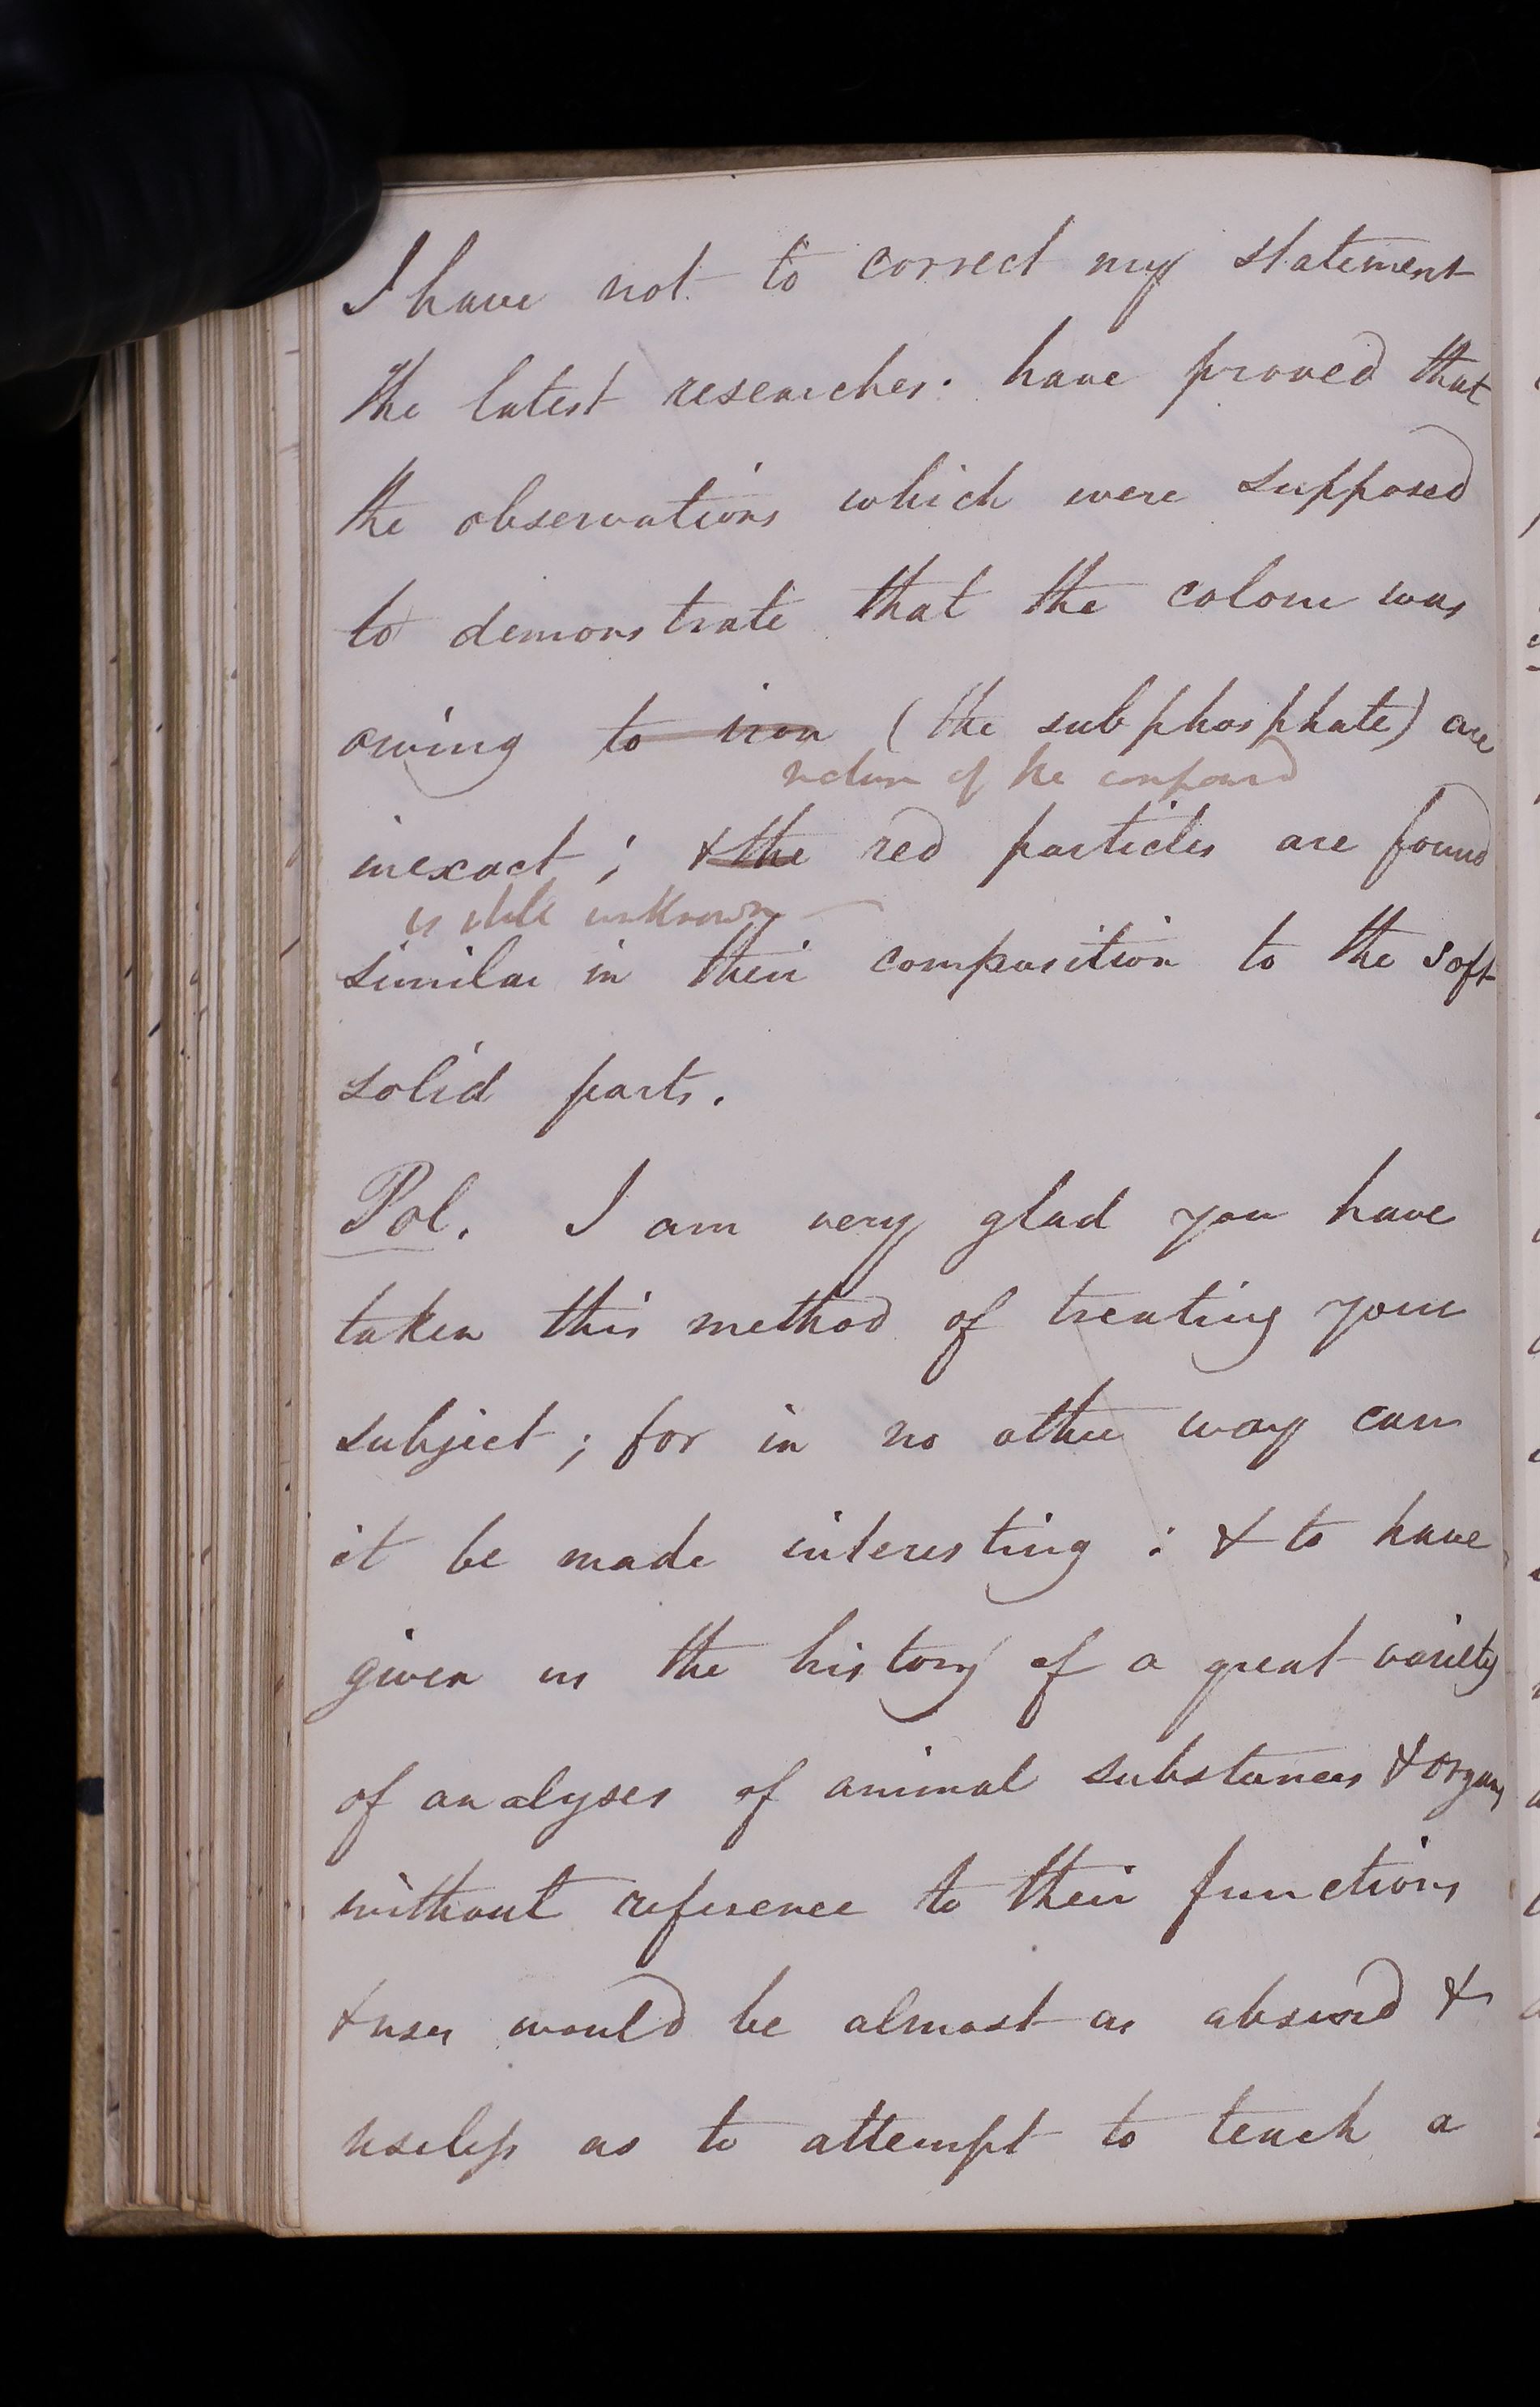 I have not to correct my statement
the latest researches. have proved that
the observations which were supposed
to demonstrate that the colour was
owing to iron (the subphosphate) are
nature of the compound
inexact; & the red particles are found
is still unknown —
similar in their composition to the soft
solid parts.
Pol. I am very glad you have
taken this method of treating your
subject; for in no other way can
it be made interesting: & to have
given us the history of a great variety
of analyses of animal substances & organs
without reference to their functions
& uses would be almost as absurd &
useless as to attempt to teach a